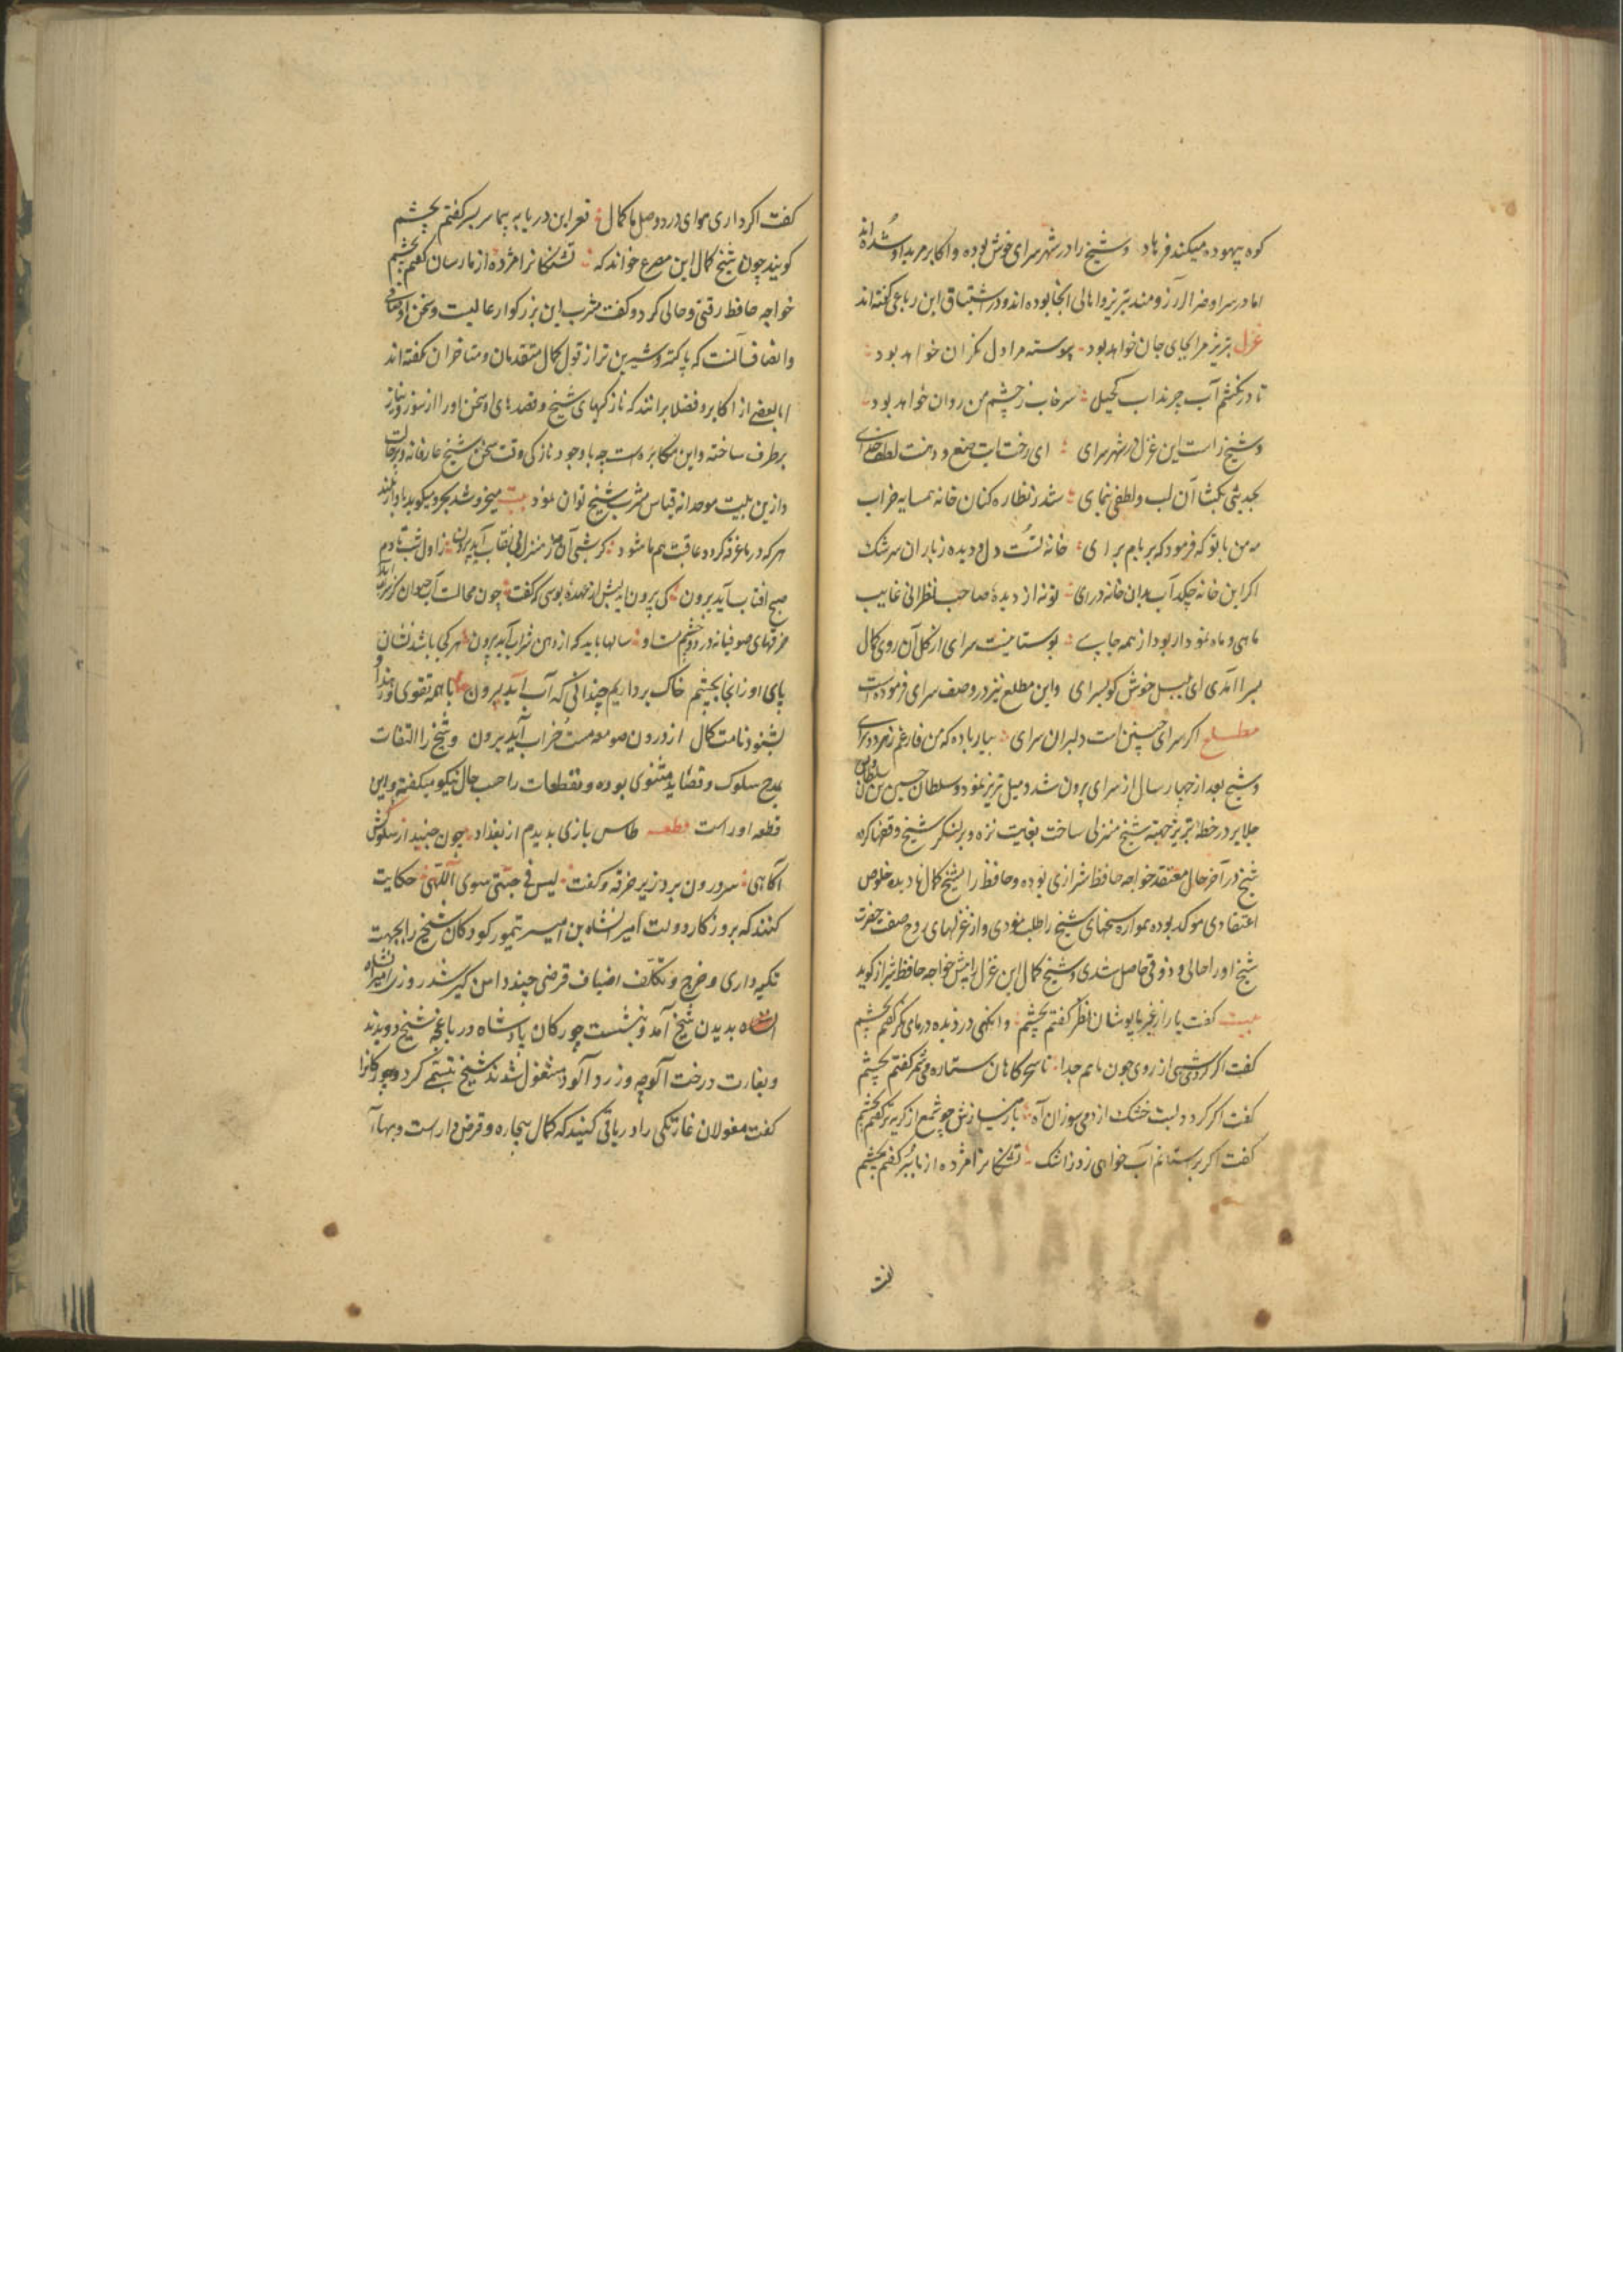 کوه بیهوده میکند فرهاد وشیخ را در شهر سرای خوش بوده واکابر مرید او شده اند
اما در سرا وضرا آرزومند تبریز واهالی انجا بوده اند ودر اشتیاق این رباعی کفته اند
غزل تبریز مرا بجای جان خواهد بود پیوسته مرا دل نکران خواهد بود
تا درنکشم آب چرنداب کجیل سرخاب ز چشم من روان خواهد بود
وشیخ راست این غزل در شهر سرای ای رخت ایت صنع ودهنت لطف خدای
بحدیثی بکشا آن لب ولطفی بنمای شد ز نظاره کنان خانه همسایه خراب
مه من با تو که فرمود که بر بام برای خانه تست دل ودیده ز باران سرشک
اکر این خانه چکد آب بدان خانه درای تو نه از دیده صاحب نظرانی غایب
ماهی وماه نمودار بود از همه جای بوستانیست سرای از کل آن روی کمال
بسرا آمدی ای بلبل خوش کو بسرای واین مطلع نیز در وصف سرای فرموده است
مطلع اکر سرای چنین است دلبران سرای بیار باده که من فارغم ز هر دو سرای
وشیخ بعد از چهار سال از سرای بیرون شد ومیل تبریز نمود وسلطان حسین بن سلطان اویس
جلایر در خطه تبریز جهته شیخ منزلی ساخت بغایت نزه وبر لنکر شیخ وقفها کرده
شیخ در آخر حال معتقد خواجه حافظ شیرازی بوده وحافظ را بشیخ کمال نادیده خلوص
اعتقادی موکد بوده همواره سخنهای شیخ را طلب نمودی واز غزلهای روح صفت حضرت
شیخ اورا حالی وذوقی حاصل شدی وشیخ کمال این غزل را پیش خواجه حافظ شیراز کوید
بیت کفت یار از غیر ما پوشان نظر کفتم بچشم وانکهی دزدیده در ما می نکر کفتم بچشم
کفت اکر کردی شبی از روی چون ماهم جدا تا سحرکاهان ستاره می شمر کفتم بچشم
کفت اکر کردد لبت خشک از دم سوزان آه باز میسازش چو شمع از کریه تر کفتم بچشم
کفت اکر بر آستانم آب خواهی زد ز اشک تشنکانرا مژده از ما بر کفتم بچشم
کفت
کفت اکر داری هوای درد وصل ما کمال قعر این دریا به پیما سر بسر کفتم بچشم
کویند چون شیخ کمال این مصرع خواند که تشنکانرا مژده از ما رسان کفتم بچشم
خواجه حافظ رقتی وحالی کرد وکفت مشرب این بزرکوار عالیست وسخن او صافی
وانصاف آنست که پاکتر وشیرین تر از قول کمال متقدمان ومتاخران نکفته اند
اما بعضی از اکابر وفضلا برانند که نازکیهای شیخ وقصدهای او سخن اورا از سوز ونیاز
برطرف ساخته واین مکابره است چه با وجود نازکی ودقت سخن شیخ عارفانه وپرحالت
وازین بیت موحدانه قیاس مشرب شیخ توان نمود بیت میخروشد بحر ومیکوید باواز بلند
هر که در ما غرقه کردد عاقبت هم ما شود کر شبی آن مه ز منزل بی نقاب آید برون ز اول شب تا دم
صبح افتاب آید برون کی برون اید لبش از عهده بوسی که کفت چون محالست آب حیوان کز سراب آید
خرقهای صوفیانه در دور چشم مست او سالها باید که از رهن شراب آید برون هر کجا باشد نشان
پای او زانجا بچشم خاک برداریم چندانی که آب آید برون با همه تقوی وزهد ار
بشنود نامت کمال از درون صومعه مست خراب آید برون وشیخ را التفات
بمدح سلوک وقصاید مثنوی بوده ومقطعات را حسب حال نیکو میکفته واین
قطعه اوراست قطعه طاس بازی بدیدم از بغداد چون جنید از سلوکش
آکاهی سر درون برد زیر خرقه وکفت لیس فی جبتی سوی اللهی حکایت
کنند که بروزکار دولت امیرانشاه بن امیر تیمور کورکان شیخ را بجهت
تکیه داری وخرج وتکلف اضیاف قرضی چند دامن کیر شد روزی امیرانشاه
بدیدن شیخ آمد وبنشست چورکان پادشاه در باغچه شیخ دویدند
وبغارت درخت آلوچه وزردآلود مشغول شدند شیخ تبسمی کرد وچورکانرا
کفت مغولان غارتکی را در باقی کنید که کمال بیچاره وقرض دار است وبهاء